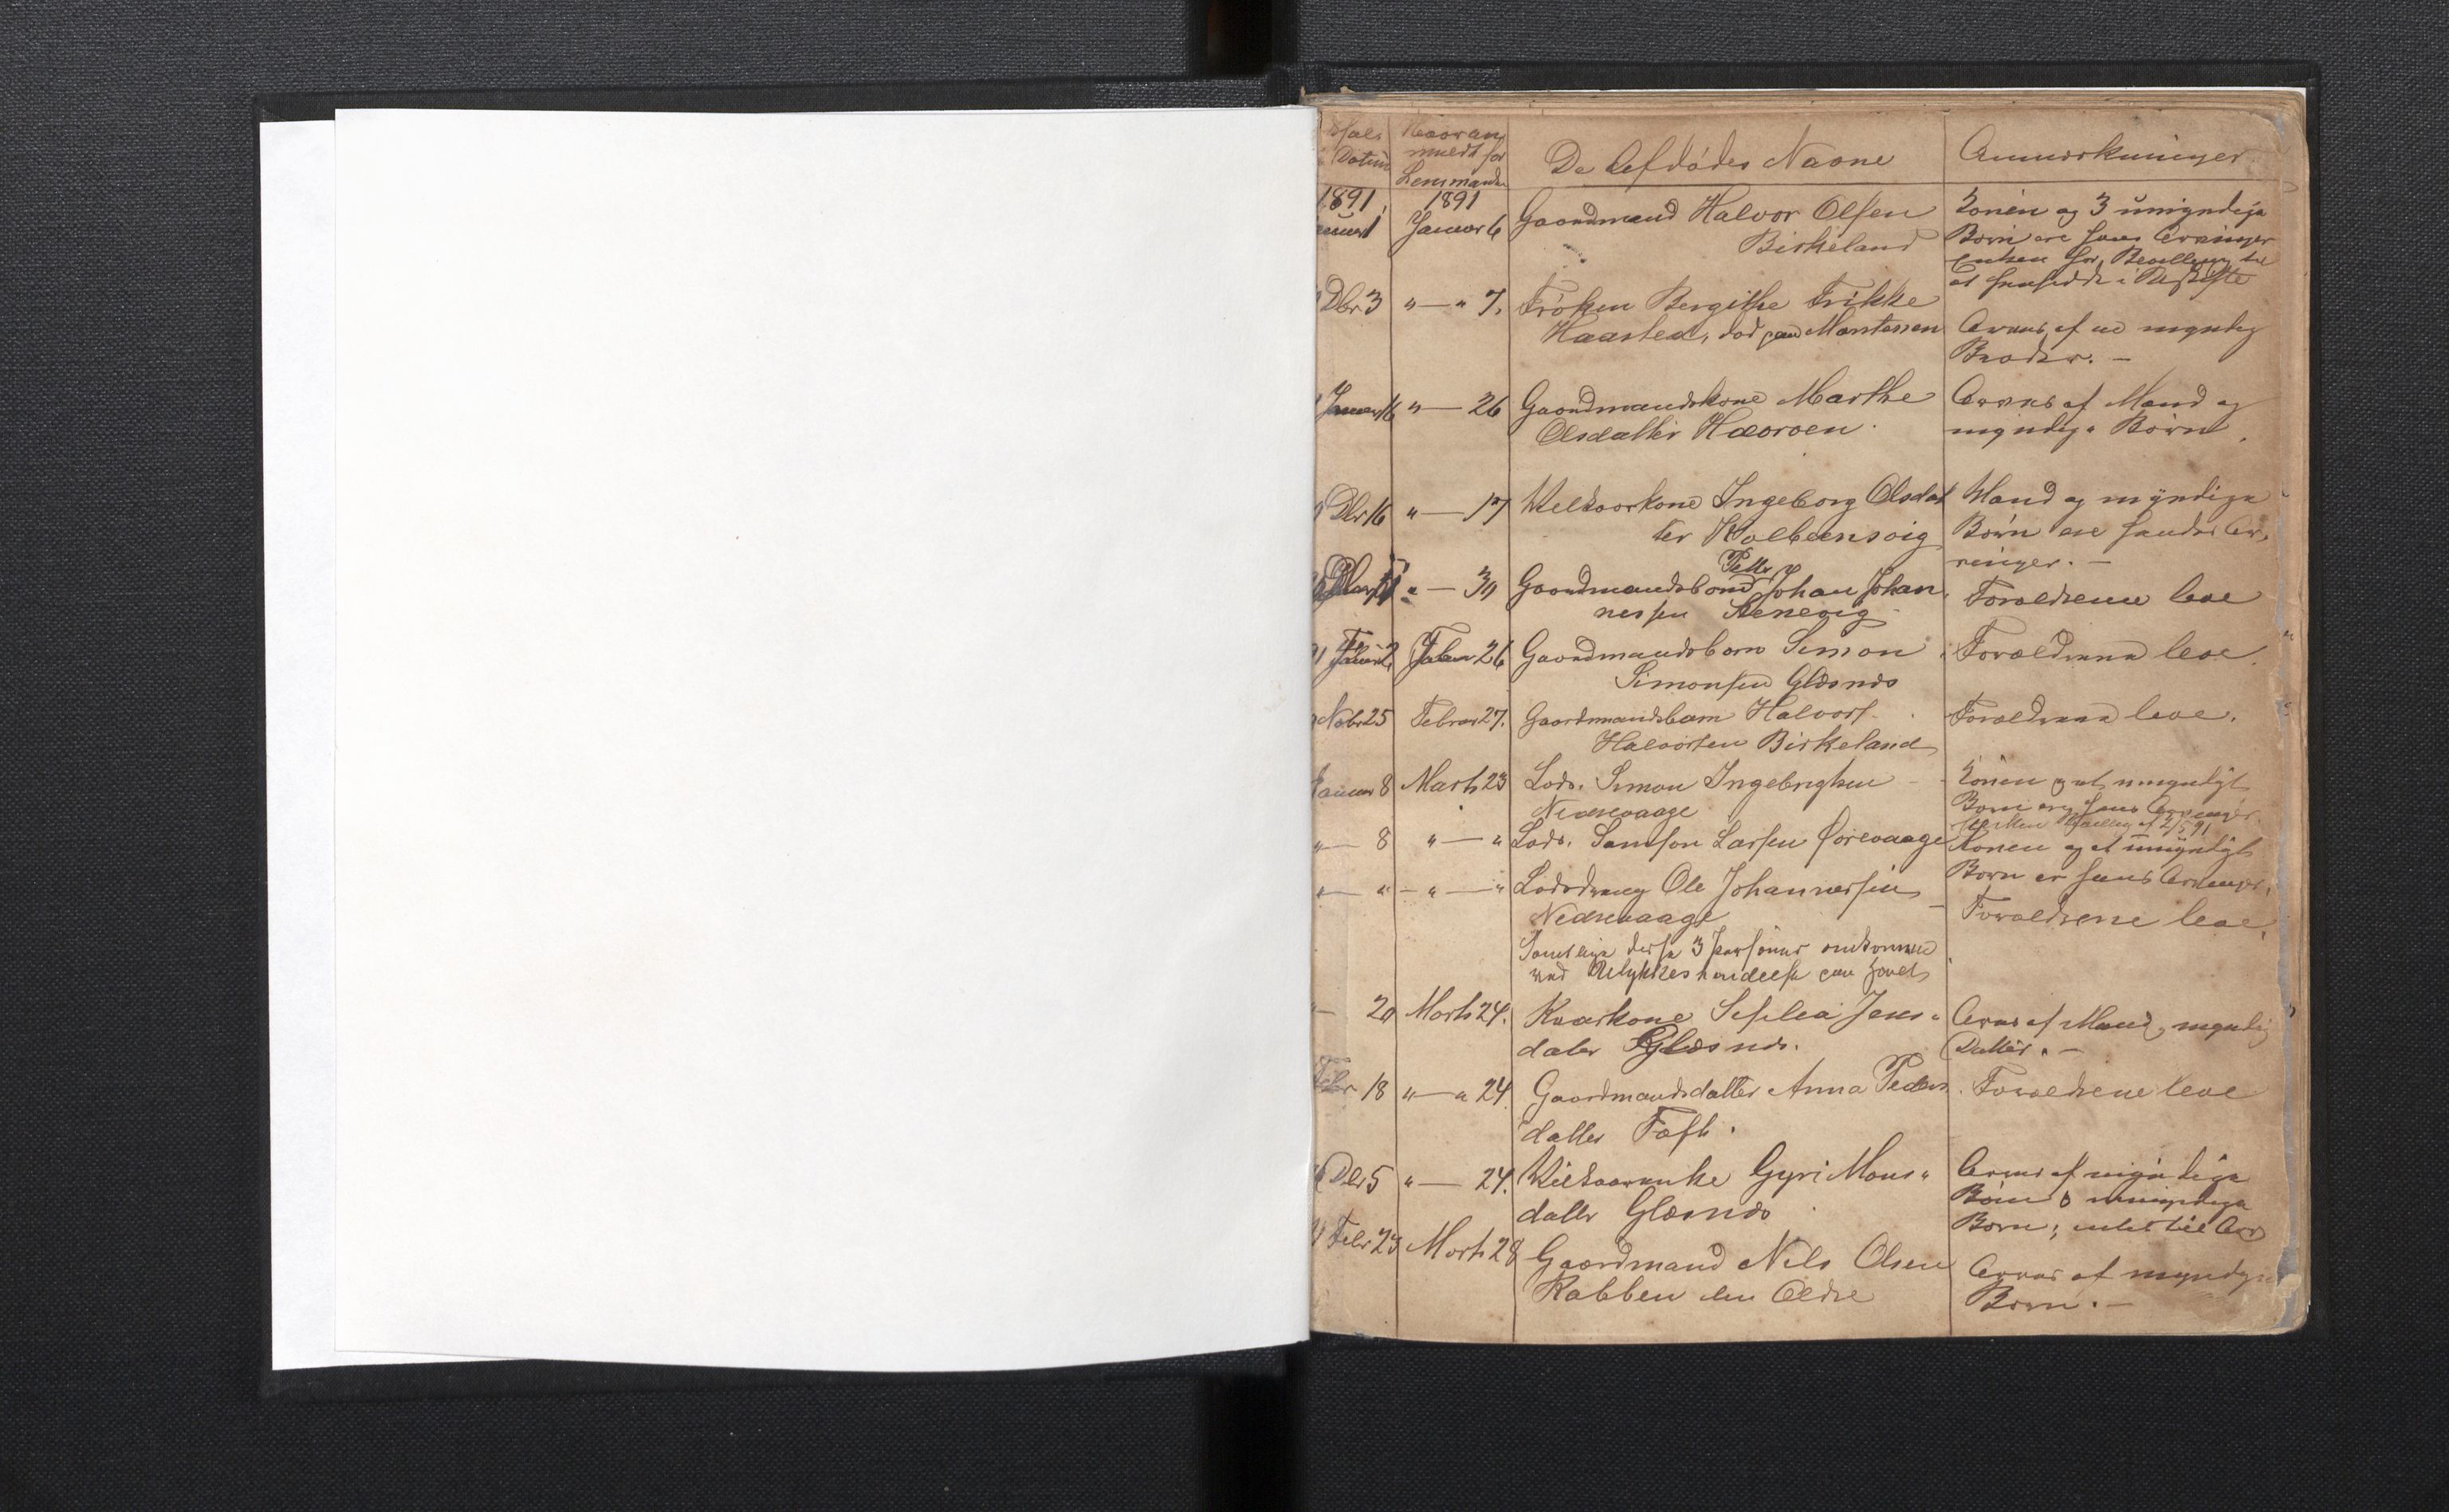 Datum
Naar an
meldt for
Lensmanden
De Afdødes Navne
Anmerkninger
1891
1891
Januar 6
Gaardmand Halvor Olsen
Birkeland
Konen og 3 umyndige
Børn ere hans Arvinger
Enken har Bevilling til
at hensidde i Uskifte
Dbr 3 " — " 7.
Frøken Bergithe Frikke
Haasted, død paa Mortensen
Arves af en myndig
Broder. —
Januar 16 " — 26
Gaardmandskone Marthe
Olsdatter Haaroen
Arves af Mand og
myndige Børn
Dbr 16 " — 17
Kelkaarkone Ingeborg Olsdat
ter Kolbeensvig
Mand og myndige
Børn ere hendes Ar,
vinger. —
" — 30
Peder
Gaardmandsbarn Johan Johan,
nessen Stenevig
Forældrene leve
Februar 26
Gaardmandsbarn Simon
Simonsen Glæsnes
Forældrene leve.
Nobr 25 Februar 27.
Gaardmandsbarn Halvor
Halvorsen Birkeland
Forældrene leve.
Januar 8 Marts 23
Lods. Simon Ingebrigtsen
Nedrevaage
Konen og et umyndigt
Barn ere hans Arvinger.
" — 8 " — "
Lods. Samson LarsenØrevaage
Konen og et umyndigt
Barn er hans Arvinger.
" — " — " — "
Lodsdreng Ole Johannessen
Nedrevaage
Forældrene leve.
Samtlige disse 3 Personer omkomne
ved Ulykkeshændelse paa Havet
— 20 Marts 24.
Kaarkone Sofia Jens-
datter Glæsnes.
Arves af Mand, myndig
Datter. —
Febr 18 " — " 24.
Gaardmandsdatter Anna Peders
datter Toft.
Forældrene leve
Dbr 5 " — 24.
Kelkaarenke Gyri Mons-
datter Glæsnes
Arves af myndige
Børn & umyndige
Børn; intet til Arv
Febr 23 Marts 28
Gaardmand Nils Olsen
Rabben den Ældre
Arves af myndige
Børn. —